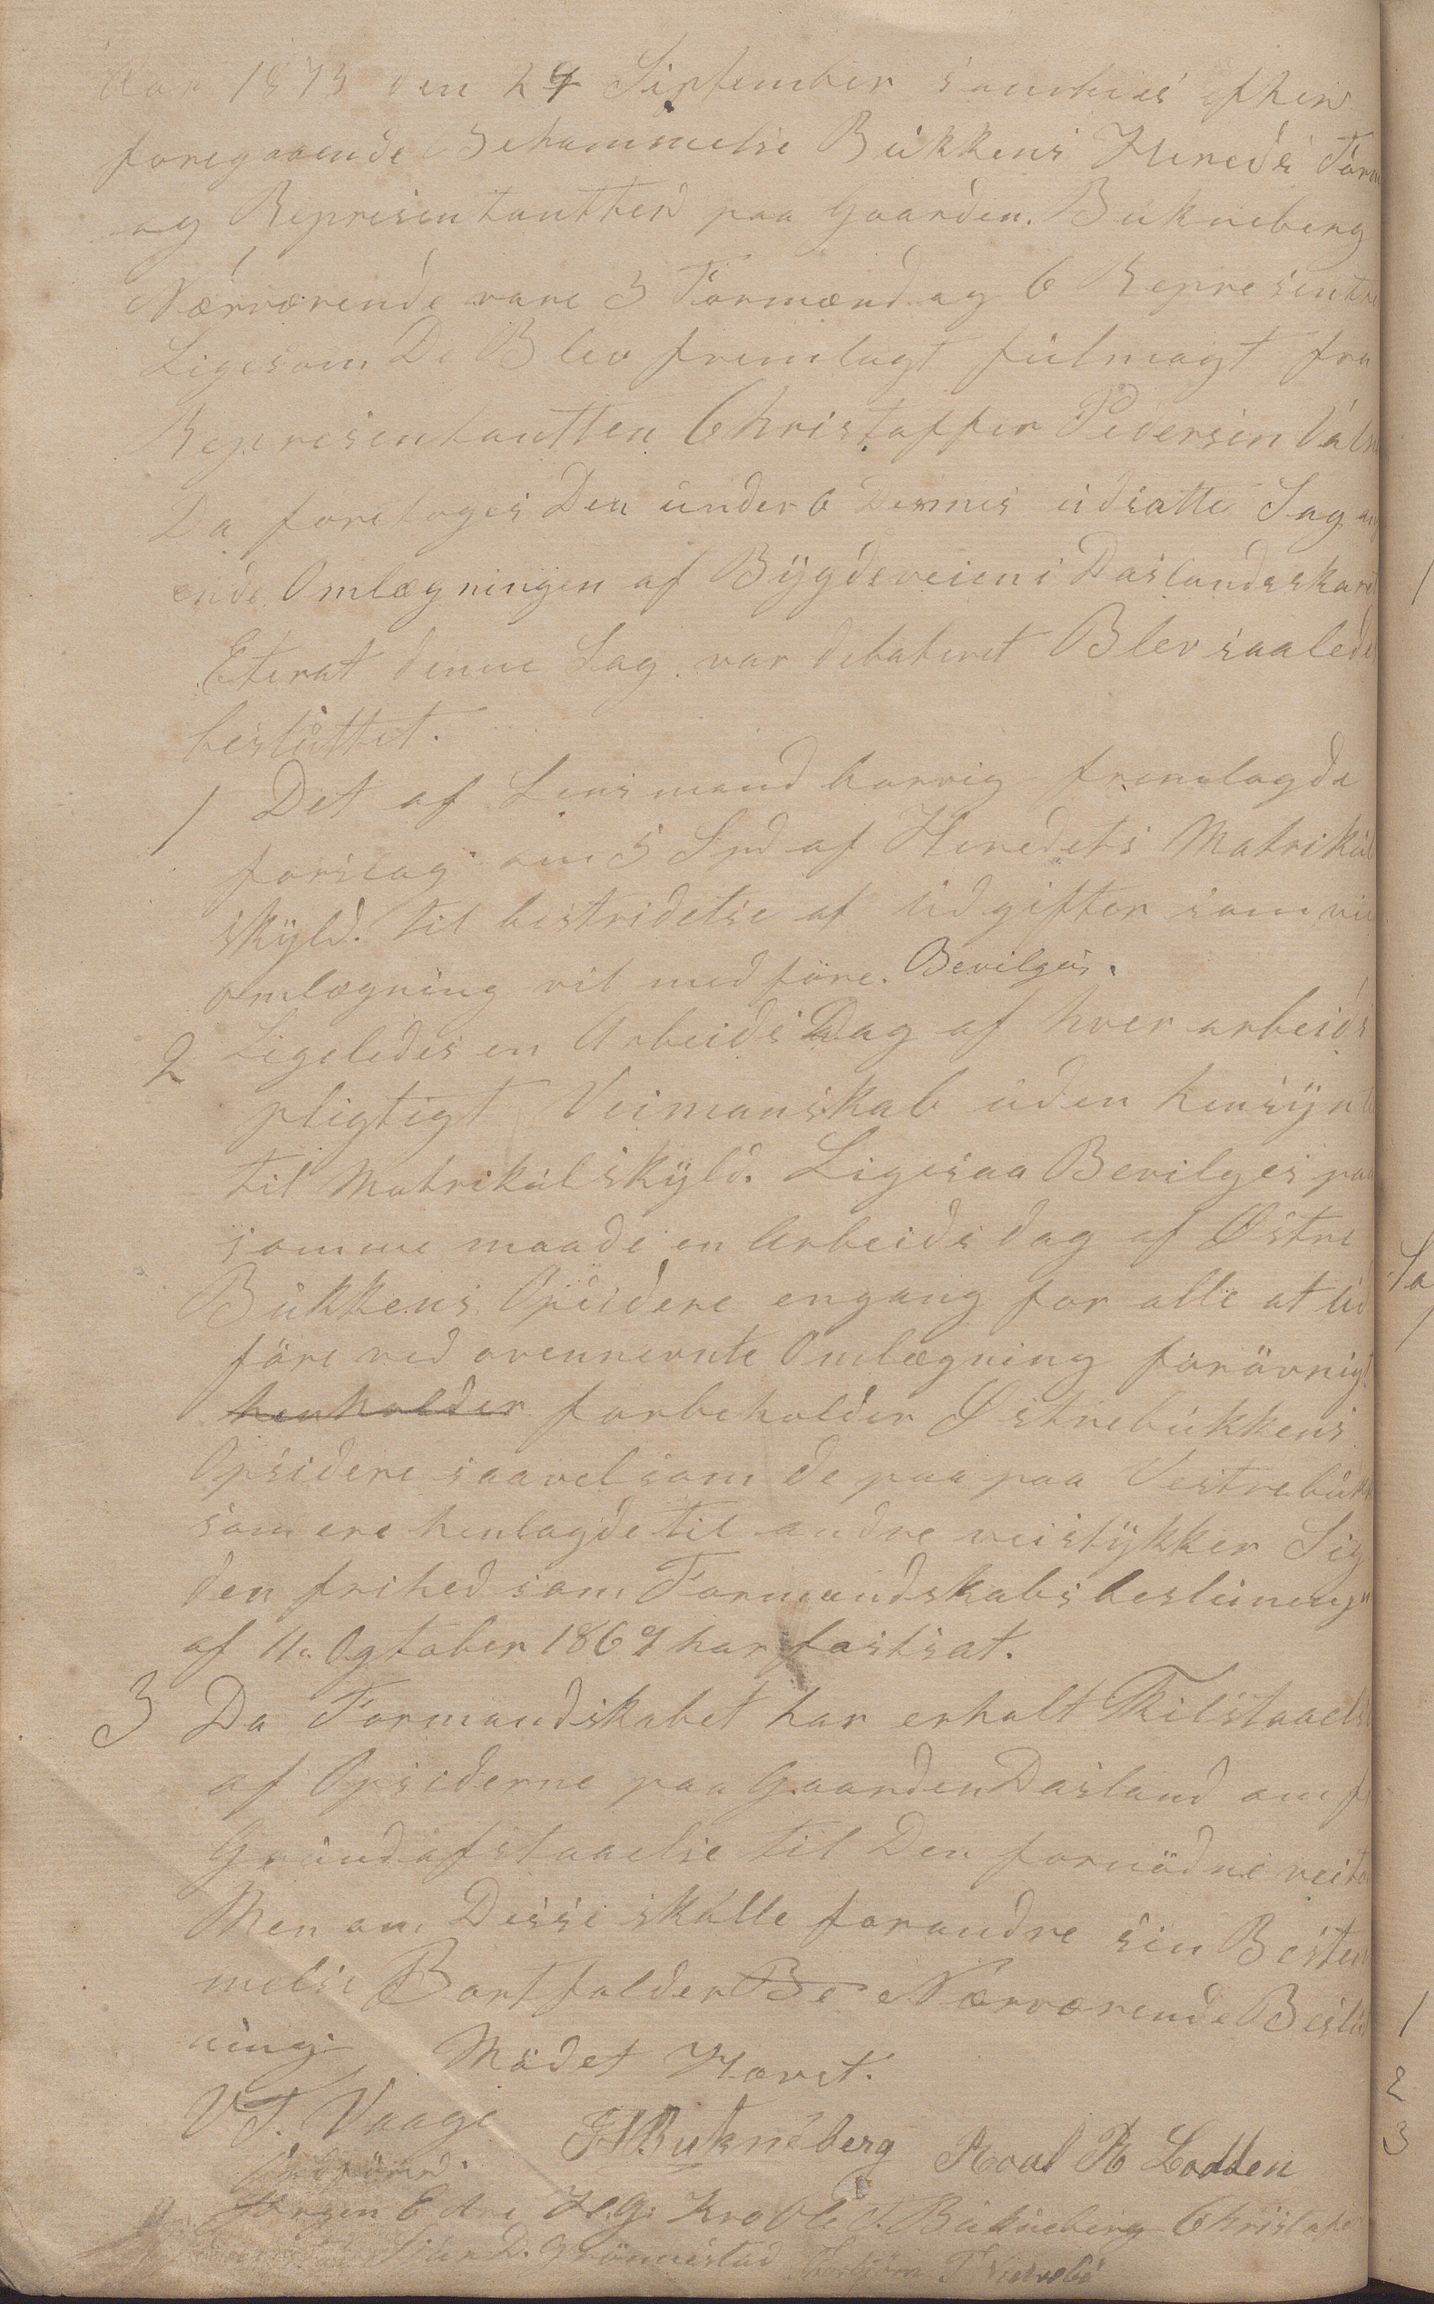 Aar 1873 den 24 September samledes efter
foregaaende Behammelse Bukkens Hereds Form
og Representantter paa Gaarden. Bukneberg
Nærværende vare 3 Formænd og 6 Represente
Ligesom De Blev fremlagt fulmagt fra
Representantten Christoffer Pedersen Valn
Da foretoges Den under 6 Dennes udsatte Sag an
ende Omlægningen af Bygdeveien i Daslandsskaret
Eterat denne Sag var debateret Blev saaledes
besluttet.
1 Det af Lensmand harvig fremlagde
forslag om 5 Spd af Heredets Matrikul
skyld. til bestridelse af udgifter som vei
omlægning vil medføre. Bevilges.
2 Ligeledes en Arbeids Dag af hver arbeids
pligtigt Veimanskab uden hensyn
til Matrikulskyld. Ligesaa Bevilges paa
samme maade en Arbeidsdag af Østre
Bukkens Opsidere engang for alle at ud
føre ved ovennevnte Omlægning forøvrigt
henholder forbeholder Østrebukkens
Opsidere saavelsom de paa paa Vestrebukk
som ere henlagde til andre veistykker Sig
den frihed som Formandskabs beslutning
af 11. Ogtober 1867 har fastsat.
3 Da Formandskabet har erholt Tilstaaelse
af Opsiderne paa Gaarden Dasland om f
Grundafstaaelse til Den fornødne veito
Men om Disse skulle forandre sin Bestem
melse Bortfalder Be Nærværende Beslut
ning. Mødet Hævet.
V T. Vaage H Bukneberg Roal R Lodden
Ordførrer.
Jørgen Edre H. G. Kro Ole T. Bukneberg Christoffe
D. Grønnestad Torbjørn T Vestrebø